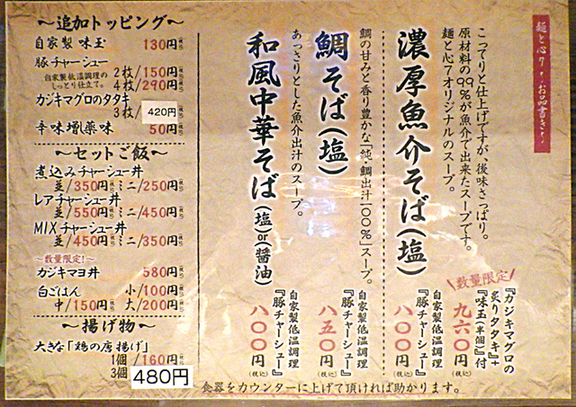 麺と心7 お品書き
こってりと仕上げですが、後味さっぱり。
原材料の99%が魚介で出来たスープです。
麺と心7オリジナルのスープ。
濃厚魚介そば(塩)
数量限定!
『カジキマグロの
炙りタタキ』+
『味玉(半個)』付
九六〇円(税込)
自家製低温調理
『豚チャーシュー』
八〇〇円(税込)
鯛の甘みと香り豊かな「純、鯛出汁100%」スープ。
鯛そば(塩)
自家製低温調理
『豚チャーシュー』
八五〇円(税込)
あっさりとした魚介出汁のスープ。
和風中華そば(塩)or(醤油)
自家製低温調理
『豚チャーシュー』
八〇〇円(税込)
〜追加トッピング〜
自家製 味玉 130円
豚チャーシュー
自家製低温調理の
しっとり仕立て。
2枚/150円
4枚/290円
カジキマグロのタタキ
3枚/ 420円
辛味増薬味 50円
〜セットご飯〜
煮込みチャーシュー丼
並/350円 ミニ/250円
レアチャーシュー丼
並/550円 ミニ/450円
MIXチャーシュー丼
並/450円 ミニ/350円
〜数量限定!〜
カジキマヨ丼 580円
白ごはん 小/100円
中/150円 大/200円
〜揚げ物〜
大きな「鶏の唐揚げ」
1個/160円
3個 480円
食器をカウンターに上げて頂ければ助かります。